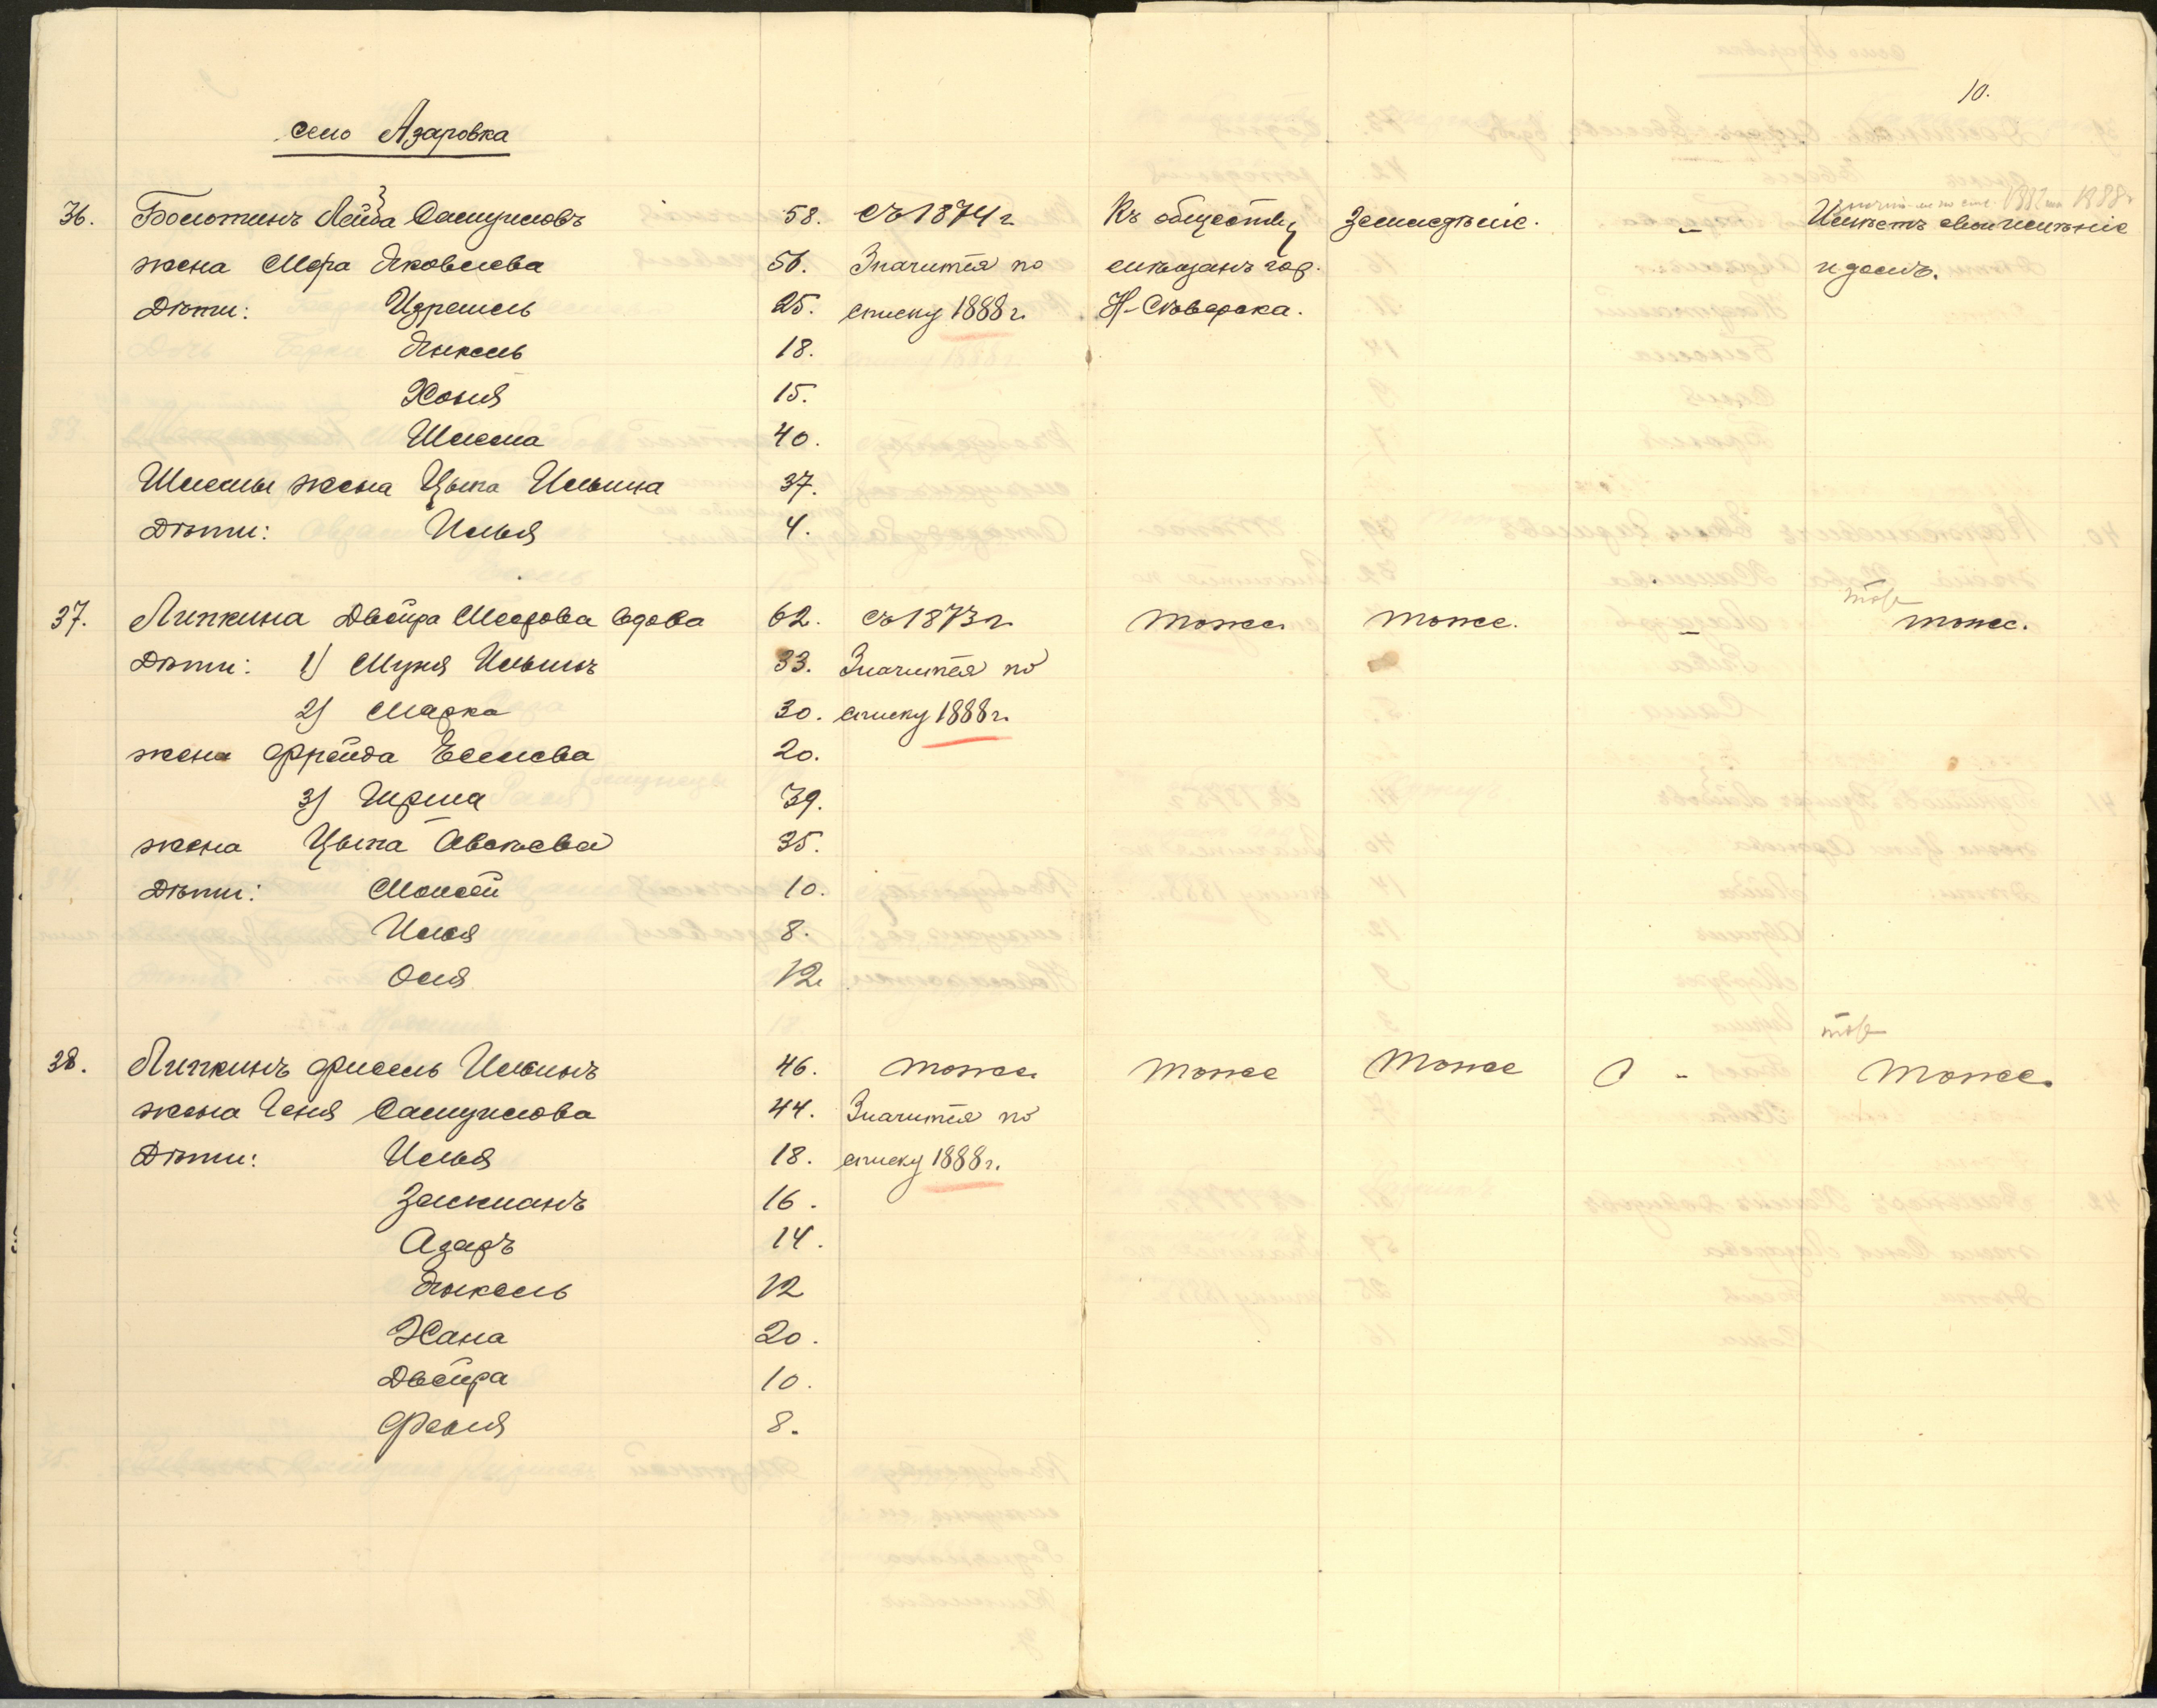 10.
село Азаровка
36. Болотинъ Лейба Самуиловъ 58. съ 1874 г. Къ обществу Земледѣліе. „ Имѣетъ свои имѣніе
жена Мера Яковлева 56. Значится по мѣщанъ гор. и домъ.
Дѣти: Израиль 25. списку 1888 г. Н-Сѣверска.
Янкель 18.
Хоня 15.
Шлема 40.
Шлемы жена Цыпа Ильина 37.
Дѣти: Илья 4.
37. Липкина Двейра Меерова вдова 62. съ 1873 г. тоже. тоже. „ тоже.
Дѣти: 1) Муня Ильинъ 33. Значится по
2) Марка 30. списку 1888 г.
жена Фрейда 20.
3) Гирша 39.
жена Цыпа 35.
Дѣти: Моисей 10.
Илья 8.
Осия 12.
38. Липкинъ Фишель Ильинъ 46. тоже. тоже тоже „ тоже.
жена Геня Самуилова 44. Значится по
Дѣти: Илья 18. списку 1888 г.
Залманъ 16.
Азаръ 14.
Янкель 12
Хана 20.
Двейра 10.
Феня 8.